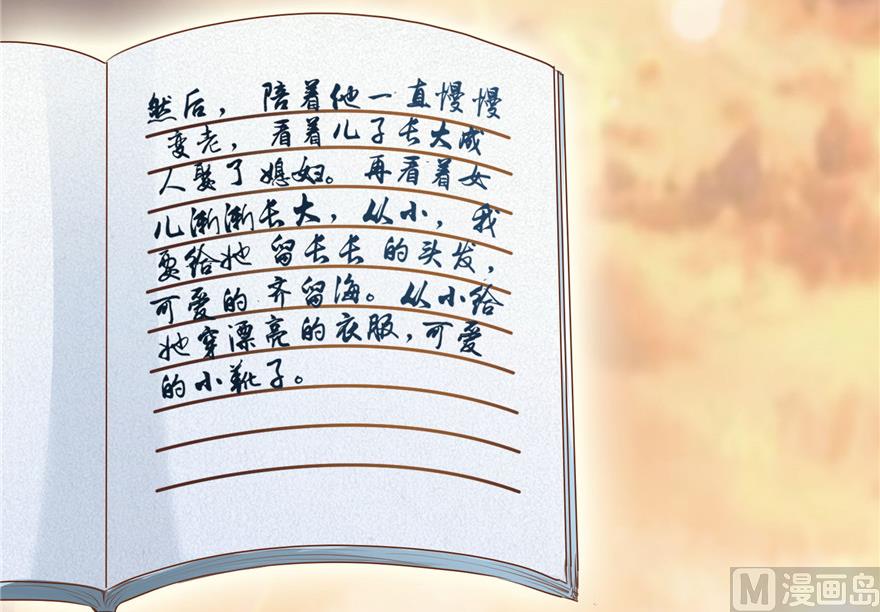 然后，陪着他一直慢慢
变老，看着儿子长大成
人娶了媳妇。再看着女
儿渐渐长大，从小，我
要给她留长长的头发，
可爱的齐留海。从小给
她穿漂亮的衣服，可爱
的小靴子。
M 漫画岛